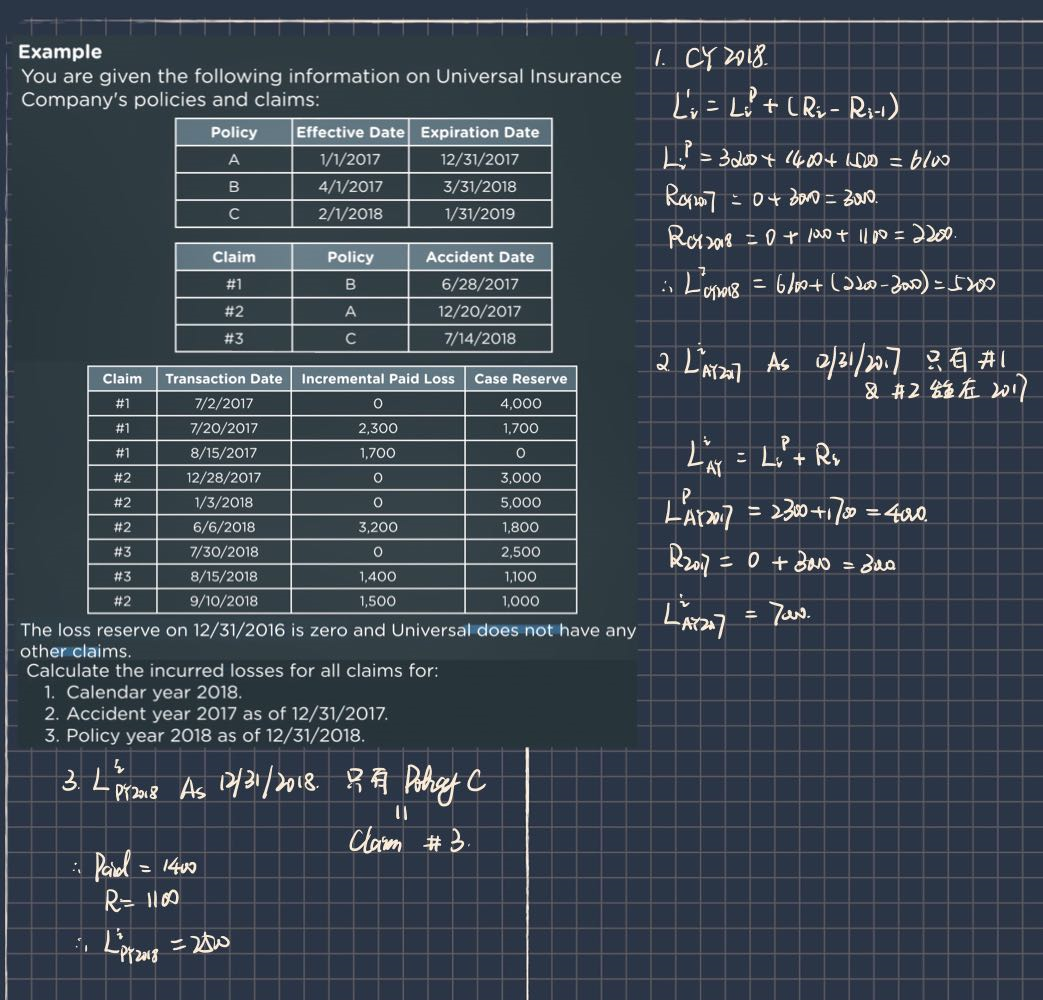 Example
You are given the following information on Universal Insurance
Company's policies and claims:
Policy Effective Date Expiration Date
A 1/1/2017 12/31/2017
B 4/1/2017 3/31/2018
C 2/1/2018 1/31/2019
Claim Policy Accident Date
#1 B 6/28/2017
#2 A 12/20/2017
#3 C 7/14/2018
Claim Transaction Date Incremental Paid Loss Case Reserve
#1 7/2/2017 0 4,000
#1 7/20/2017 2,300 1,700
#1 8/15/2017 1,700 0
#2 12/28/2017 0 3,000
#2 1/3/2018 0 5,000
#2 6/6/2018 3,200 1,800
#3 7/30/2018 0 2,500
#3 8/15/2018 1,400 1,100
#2 9/10/2018 1,500 1,000
The loss reserve on 12/31/2016 is zero and Universal does not have any
other claims.
Calculate the incurred losses for all claims for:
1. Calendar year 2018.
2. Accident year 2017 as of 12/31/2017.
3. Policy year 2018 as of 12/31/2018.
1. CY 2018.
Lᵢⁱ = Lᵢᵖ + (Rᵢ - Rᵢ₋₁)
Lᵢᵖ = 3200 + 1400 + 1500 = 6100
R_CY2017 = 0 + 3000 = 3000.
R_CY2018 = 0 + 1000 + 1100 = 2200.
∴ Lⁱ_CY2018 = 6100 + (2200 - 3000) = 5200
2 Lⁱ_AY2017 As 12/31/2017 只有 #1
& #2 在 2017
Lⁱ_AY = Lᵢᵖ + Rᵢ
Lᵖ_AY2017 = 2300 + 1700 = 4000.
R2017 = 0 + 3000 = 3000
Lⁱ_AY2017 = 7000.
3. Lⁱ_PY2018 As 12/31/2018. 只有 Policy C
||
Claim #3.
∴ Paid = 1400
R = 1100
∴ Lⁱ_PY2018 = 2500